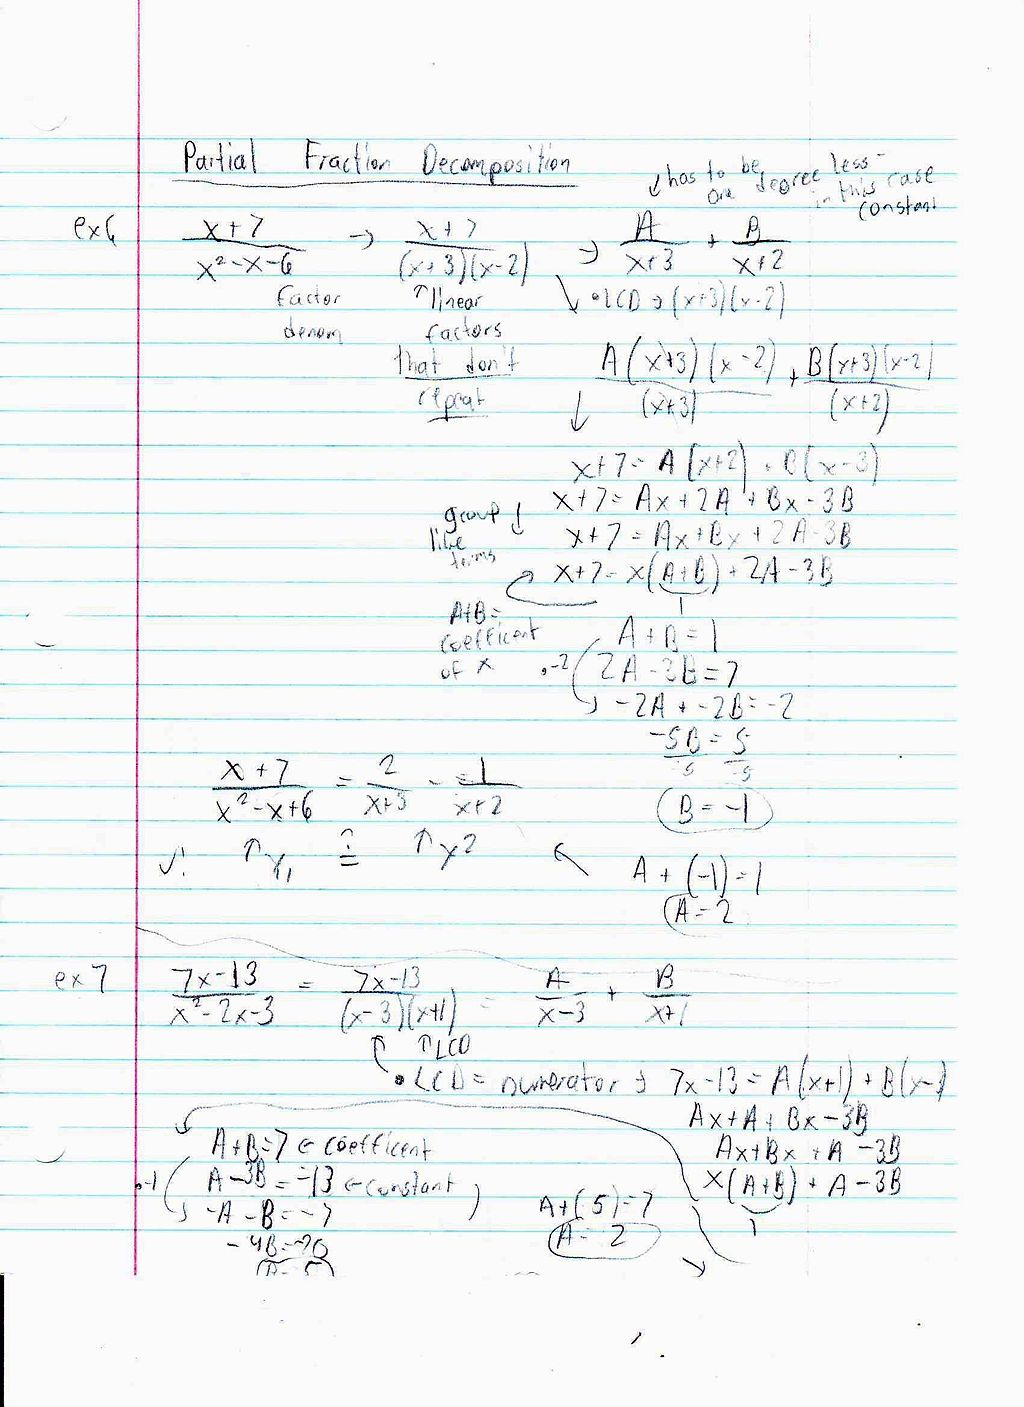 Partial Fraction Decomposition
has to be one degree less - in this case constant
ex 6 x+7 / x²-x-6 → x+7 / (x+3)(x-2) → A / x+3 + B / x+2
factor denom
↑ linear factors that don't repeat
• LCD → (x+3)(x-2)
A(x+3)(x-2) / (x+3) + B(x+3)(x-2) / (x+2)
x+7 = A(x+2) + B(x-3)
x+7 = Ax+2A + Bx-3B
group like terms
x+7 = Ax+Bx+2A-3B
x+7 = x(A+B)+2A-3B
A+B = coefficent of x
A+B=1
•-2
2A-3B=7
-2A+-2B=-2
-5B = 5
-5 -5
B=-1
x+7 / x²-x+6 = 2 / x+3 - -1 / x+2
✓: ↑ y₁ ≟ ↑ y2
A+(-1)=1
A=2
ex 7 7x-13 / x²-2x-3 = 7x-13 / (x-3)(x+1) = A / x-3 + B / x+1
↑ LCD
• LCD = numerator → 7x-13 = A(x+1)+B(x-3)
Ax+A+Bx-3B
Ax+Bx+A-3B
x(A+B)+A-3B
A+B=7 ← coefficent
•-1
A-3B=-13 ← constant
-A-B=-7
-4B=-20
A+(5)=7
A=2